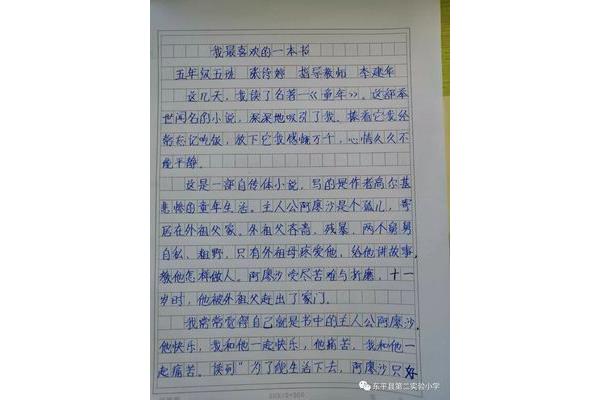 我最喜欢的一本书
五年级五班 张诗婷 指导教师 李建华
这几天，我读了名著一《童年》。这部举
世闻名的小说，深深地吸引了我。捧着它我经
常忘记吃饭，放下它我感慨万千，心情久久不
能平静。
这是一部自传体小说，写的是作者高尔基
悲惨的童年生活。主人公阿廖沙是个孤儿，寄
居在外祖父家。外祖父吝啬、残暴，两个舅舅
自私、粗野，只有外祖母疼爱他，给他讲故事，
教他怎样做人。阿廖沙受尽苦难与折磨，十一
岁时，他被外祖父赶出了家门。
我常常觉得自己就是书中的主人公阿廖沙，
他快乐，我和他一起快乐，他痛苦，我和他一
起痛苦。读到"为了能生活下去，阿廖沙只好
东平县第二实验小学